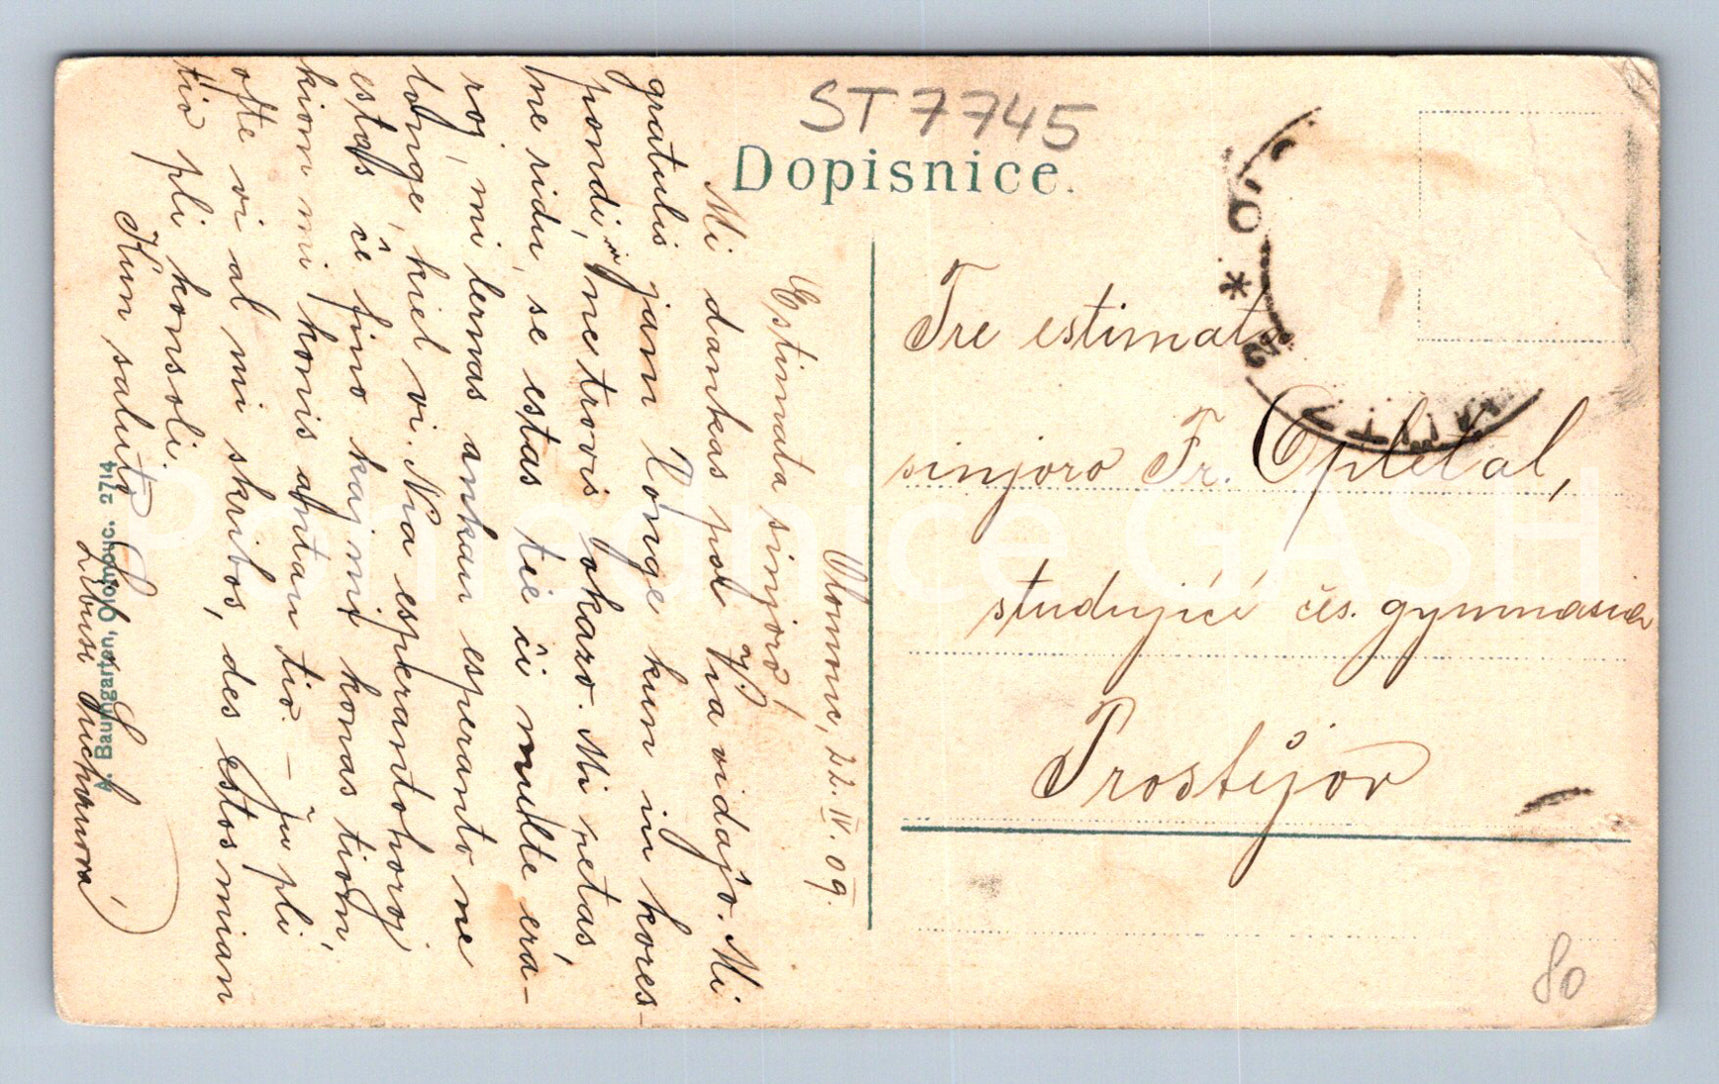 ST 7745
Dopisnice.
Olomouc, 22. IV. 09.
Estimata sinjoro!
Mi dankas pol via vidajo. Mi
gratulis jam longe kun in kores-
pondi, ne trovis okazo. Mi petas,
ne ridu, se estas tie ĉi multe era-
roj, mi lernas ankau esperanto ne
longe, kiel vi. Nia esperantohoroj
estas ĉe fino kaj mi konas tiom,
kiom mi konis antau tio. – Ju pli
ofte vi al mi skribos, des estos mian
tio pli konsoli.
Kun saluto
Libusi
A. Baumgarten, Olomouc. 2714
Tre estimata
sinjoro Fr. Opletal,
studující čes. gymnasia
Prostějov
80
Pohlednice GASH